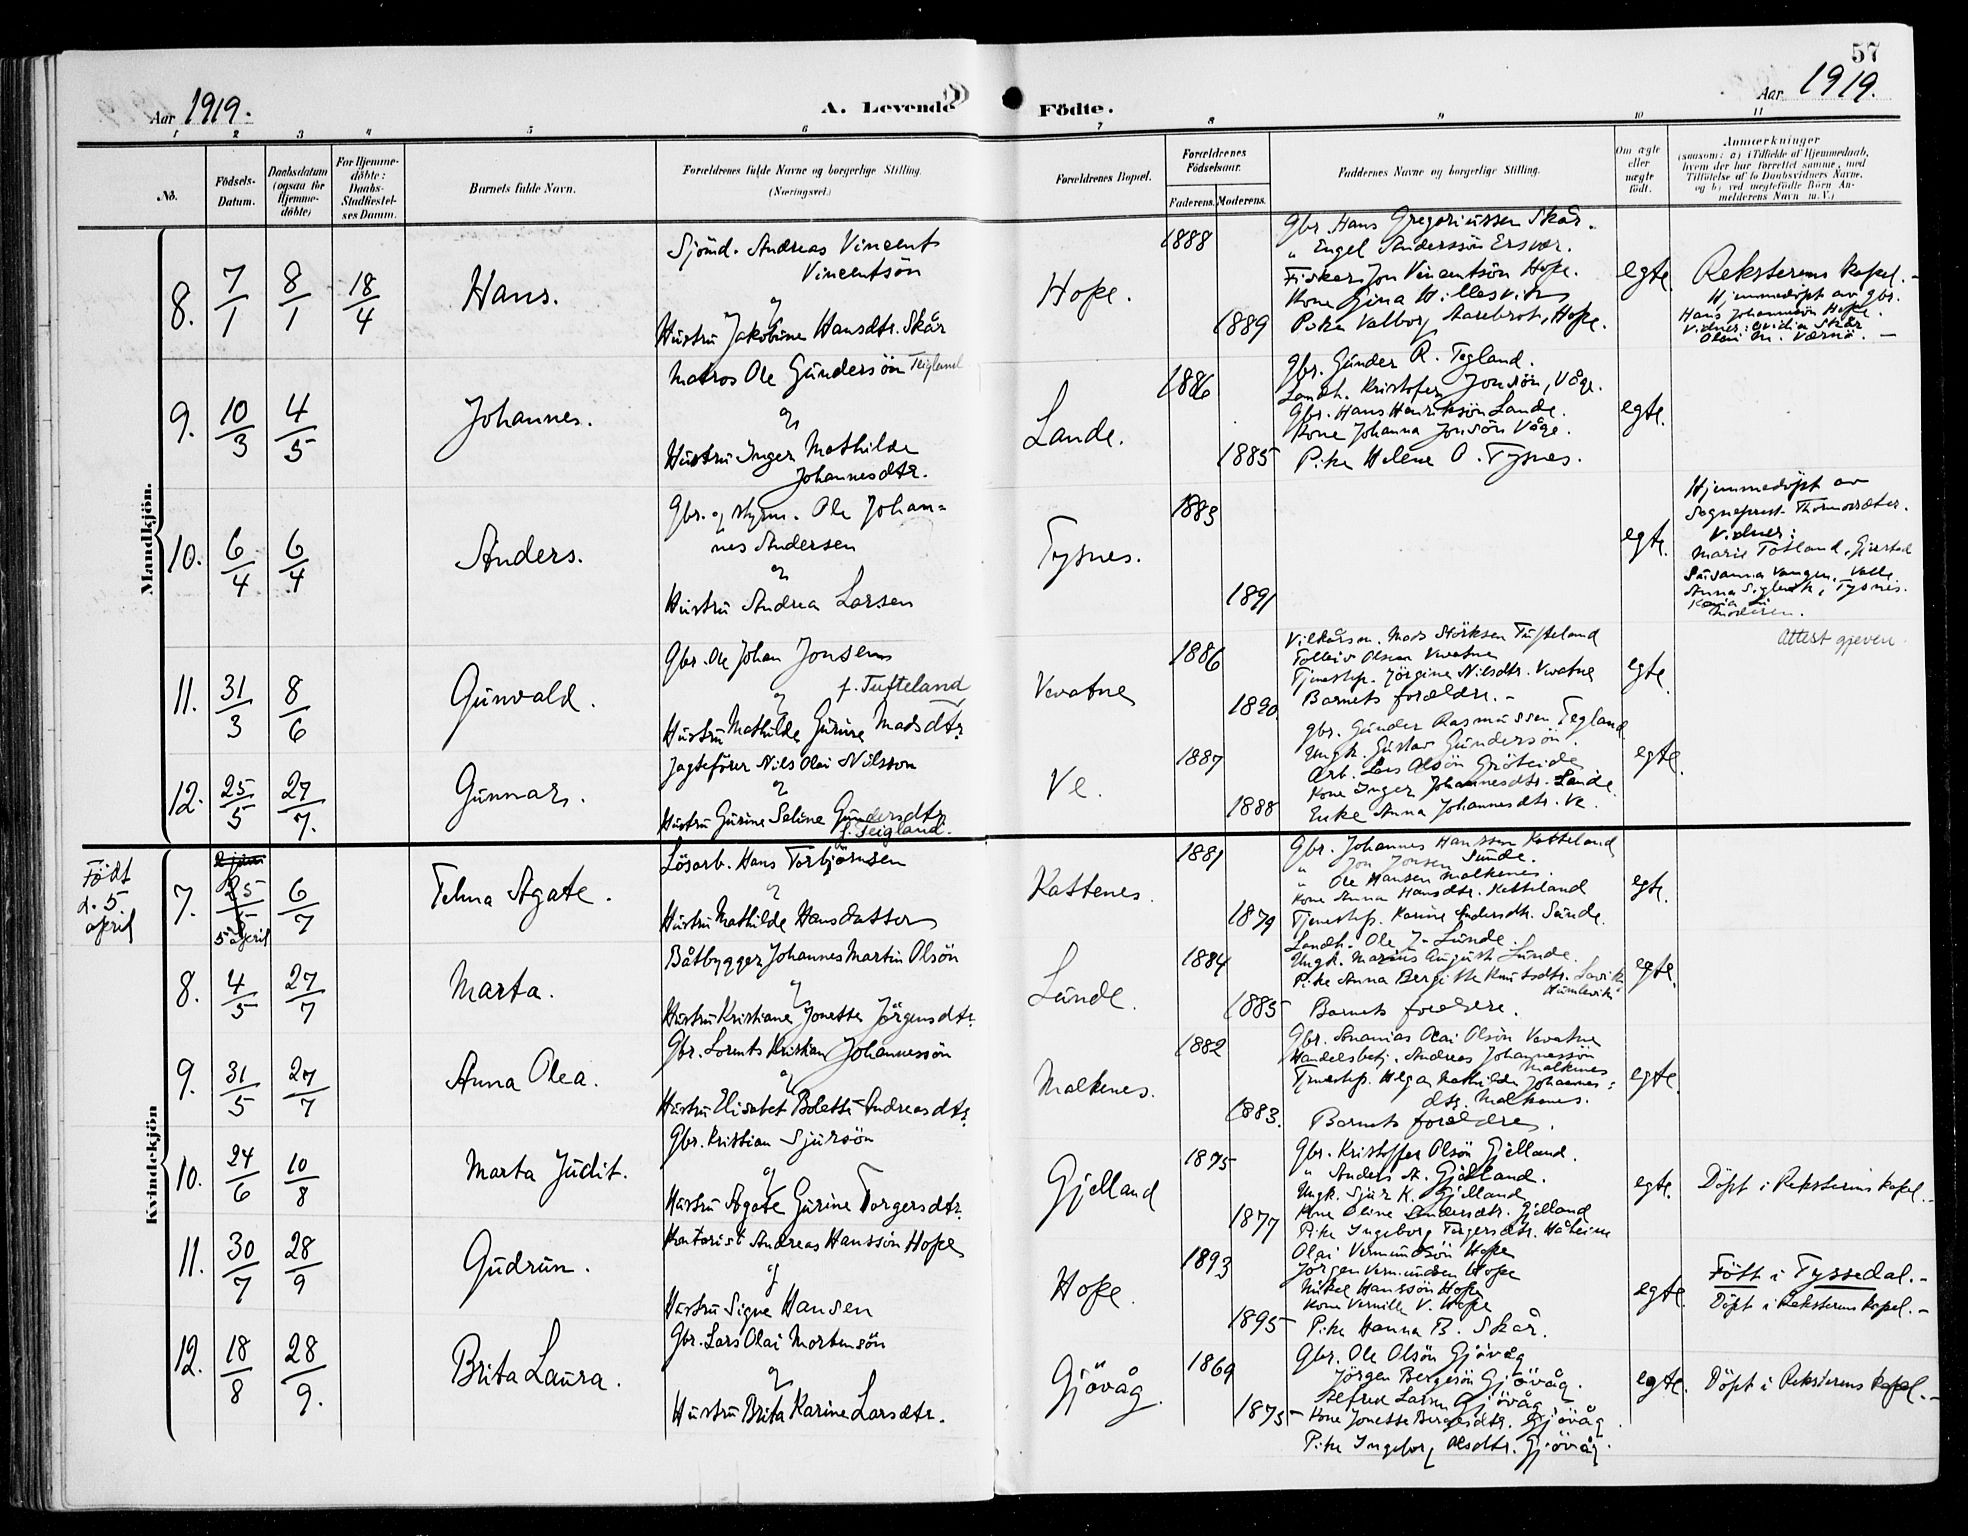 57
Aar 1919.
A. Levende Födte.
Aar 1919.
1 2 3 4 5 6 7 8 9 10 11
No.
Födsels-Datum.
Daabsdatum (ogsaa for Hjemme-döbte)
For Hjemme-döbte: Daabs-Stadfæstel-ses Datum.
Barnets fulde Navn.
Forældrenes fulde Navne og borgerlige Stilling. (Næringsvei.)
Forældrenes Bopæl.
Forældrenes Födselsaar.
Faderens. Moderens.
Faddernes Navne og borgerlige Stilling.
Om ægte eller uægte födt.
Anmærkninger
(saasom: a) i Tilfælde af Hjemmedaab,
hvem der har forrettet samme, med
Tilföielse af to Daabsvidners Navne,
og b) ved uægtefödte Börn An-
melderens Navn m. V.)
Mandkjön.
8. 7/1 8/1 18/4 Hans.
Sjömd. Andreas Vincents
Vincentsön
og
Hustru Jakobine Hansdtr. Skår
Hope.
1888
1889
Gbr. Hans Gregoriussen Skår.
" Engel Anderssön Ersvær.
Fisker Jon Vincentsön Hope.
Kone Gina Hillesvik
Pike Valborg Aarebrot, Hope.
egte.
Reksterens kapel. -
Hjemmedöpt av gbr.
Hans Johannesön Hope.
Vidner: Ovidia Skår
Olai M. Værnö. -
9. 10/3 4/5 Johannes.
Matros Ole Gundersön Teigland
og
Hustru Inger Mathilde
Johannesdtr.
Lande.
1886
1885
Gbr. Gunder R. Tegland.
Landh. Kristofer Jonsön, Våge.
Gbr. Hans Henriksön Lande.
Kone Johanna Jonsön Våge.
Pike Helene O. Tysnes.
egte.
10. 6/4 6/4 Anders.
Gbr. og styrm. Ole Johan=
nes Andersen
og
Hustru Andrea Larsen
Tysnes.
1883
1891
egte.
Hjemmedöpt av
Sogneprest Thormodsæter.
Vidner:
Marie Totland, Gjerstad
Susanna Vangen, Valle
Anna Tysnes.
Moderen.
Attest gjeven.
11. 31/3 8/6 Gunvald.
Gbr. Ole Johan Jonsen
og f. Tufteland
Hustru Mathilde Gurine Madsdtr.
Vevatne
1886
1890.
Vilkårsm. Mads Störksen Tufteland
Tolleiv Olsen Vevatne
Tjenestep. Jörgine Nilsdtr. Vevatne
Barnets forældre. -
egte.
12. 25/5 27/7. Gunnar.
Jagteförer Nils Olai Nilsson
og
Hustru Gurine Seline Gundersdtr.
f. Teigland.
Ve.
1887
1888
Gbr. Gunder Rasmussen Tegland
Ungk. Gustav Gundersön.
Arb. Lars Olsön Gröteide
Kone Inger Johannesdtr. Lande.
Enke Anna Johannesdtr. Ve.
egte.
Kvindekjön
Födt
d. 5
april
7. 25/5 5 april 6/7 Telma Agate.
Lösarb. Hans Torbjörnsen
og
Hustru Mathilde Hansdatter
Kattenes.
1881
1879
Gbr. Johannes Hanssen Katteland
" Jon Jonsen Sunde.
" Ole Hansen Malkenes.
Kone Anna Hansdtr. Ketteland
Tjenestep. Karine Andersdtr. Sunde.
egte.
8. 4/5 27/7 Marta.
Båtbygger Johannes Martin Olsön
og
Hustru Kristiane Jonette Jörgensdtr.
Sunde.
1884
1885
Landh. Ole J. Sunde.
Ungk. Marius August Sunde.
Pike Anna Bergitte Knutsdtr. Lavik
Humlevik
Barnets forældre.
egte.
9. 31/5 27/7 Anna Olea.
Gbr. Lorents Kristian Johannessön
og
Hustru Elisabet Bolette Andreasdtr.
Malkenes.
1882
1883.
Gbr. Ananias Olai Olsön Vevatne
Handelsbetj. Andreas Johannessön
Malkenes
Tjenestep. Helga Mathilde Johannes=
dtr. Malkenes.
Barnets forældre.
egte.
10. 24/6 10/8 Marta Judit.
Gbr. Kristian Sjursön
og
Hustru Agate Gurine Torgersdtr.
Gjelland
1875
1877
Gbr. Kristoffer Olsön Gjelland.
" Anders A. Gjelland.
Ungk. Sjur K. Gjelland
Kone Oline Andersdtr. Gjelland
Pike Ingeborg Torgersdtr. Håheim
egte.
Döpt i Reksterens kapel. -
11. 30/7 28/9 Gudrun.
Kontorist Andreas Hanssön Hope
og
Hustru Signe Hansen
Hope.
1893
1895
Olai Vermundsön Hope
Jörgen Vermundsen Hope
Mikel Hanssön Hope
Kone Vernille V. Hope
Pike Hanna B. Skår.
egte.
Född i Tyssedal. -
Döpt i Reksterens kapel. -
12. 18/8 28/9. Brita Laura.
Gbr. Lars Olai Mortensön
og
Hustru Brita Karine Larsdtr.
Gjövåg.
1869
1875
Gbr. Ole Olsön Gjövåg
Jörgen Bergesön Gjövåg.
Alfred Larsen Gjövåg
Kone Jonette Bergesdtr. Gjövåg
Pike Ingeborg Olsdtr. Gjövåg.
egte.
Döpt i Reksterens kapel. -